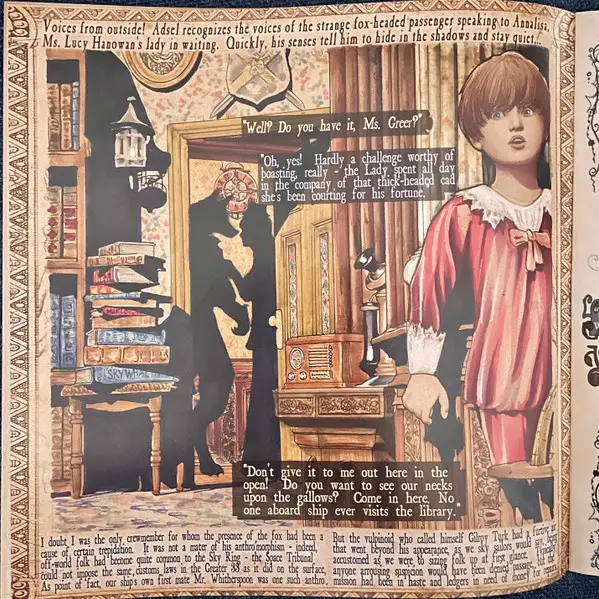 Voices from outside! Adsel recognizes the voices of the strange fox-headed passenger speaking to Annalisa,
Ms. Lucy Hanowan's lady in waiting. Quickly, his senses tell him to hide in the shadows and stay quiet...
"Well? Do you have it, Ms. Greer?"
"Oh, yes! Hardly a challenge worthy of
boasting, really - the Lady spent all day
in the company of that thick-headed cad
she's been courting for his fortune.
SKYWHAL
"Don't give it to me out here in the
open! Do you want to see our necks
upon the gallows? Come in here. No
one aboard ship ever visits the library."
I doubt I was the only crewmember for whom the presence of the fox had been a
cause of certain trepidation. It was not a mater of his anthromorphism - indeed,
off-world folk had become quite common to the Sky Ring - the Space Tribunal
could not impose the same customs laws in the Greater 33 as it did on the surface.
As point of fact, our ship's own first mate Mr. Whitherspoon was one such anthro.
But the vulpinoid who called himself Gilrpy Turk had a furtive air
that went beyond his appearance, as we sky sailors would get
accustomed as we were to sizing folk up at first glance. Typically
anyone arousing suspicion would have been denied passage, but the
mission had been in haste and ledgers in need of money for